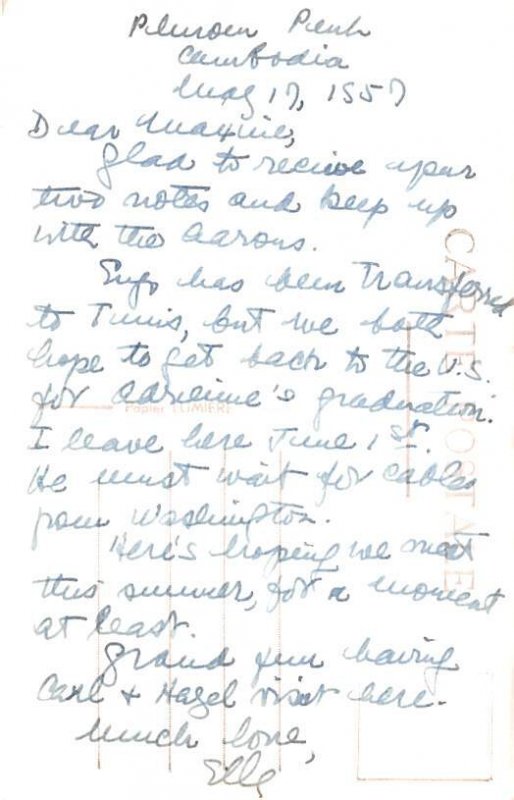 Phnom Penh
Cambodia
May 17, 1957
Dear Maxine,
Glad to recieve your
two notes and keep up
with the Aarons.
has been transferred
to Tunis, but we both
hope to get back to the U.S.
for Adrienne's graduation.
Papier LUMIERE
I leave here June 1st.
He must wait for cables
from Washington.
Here's hoping we meet
this summer, for a moment
at least.
Grand fun having
Carl + Hazel visit here.
Much love,
CARTE POSTALE